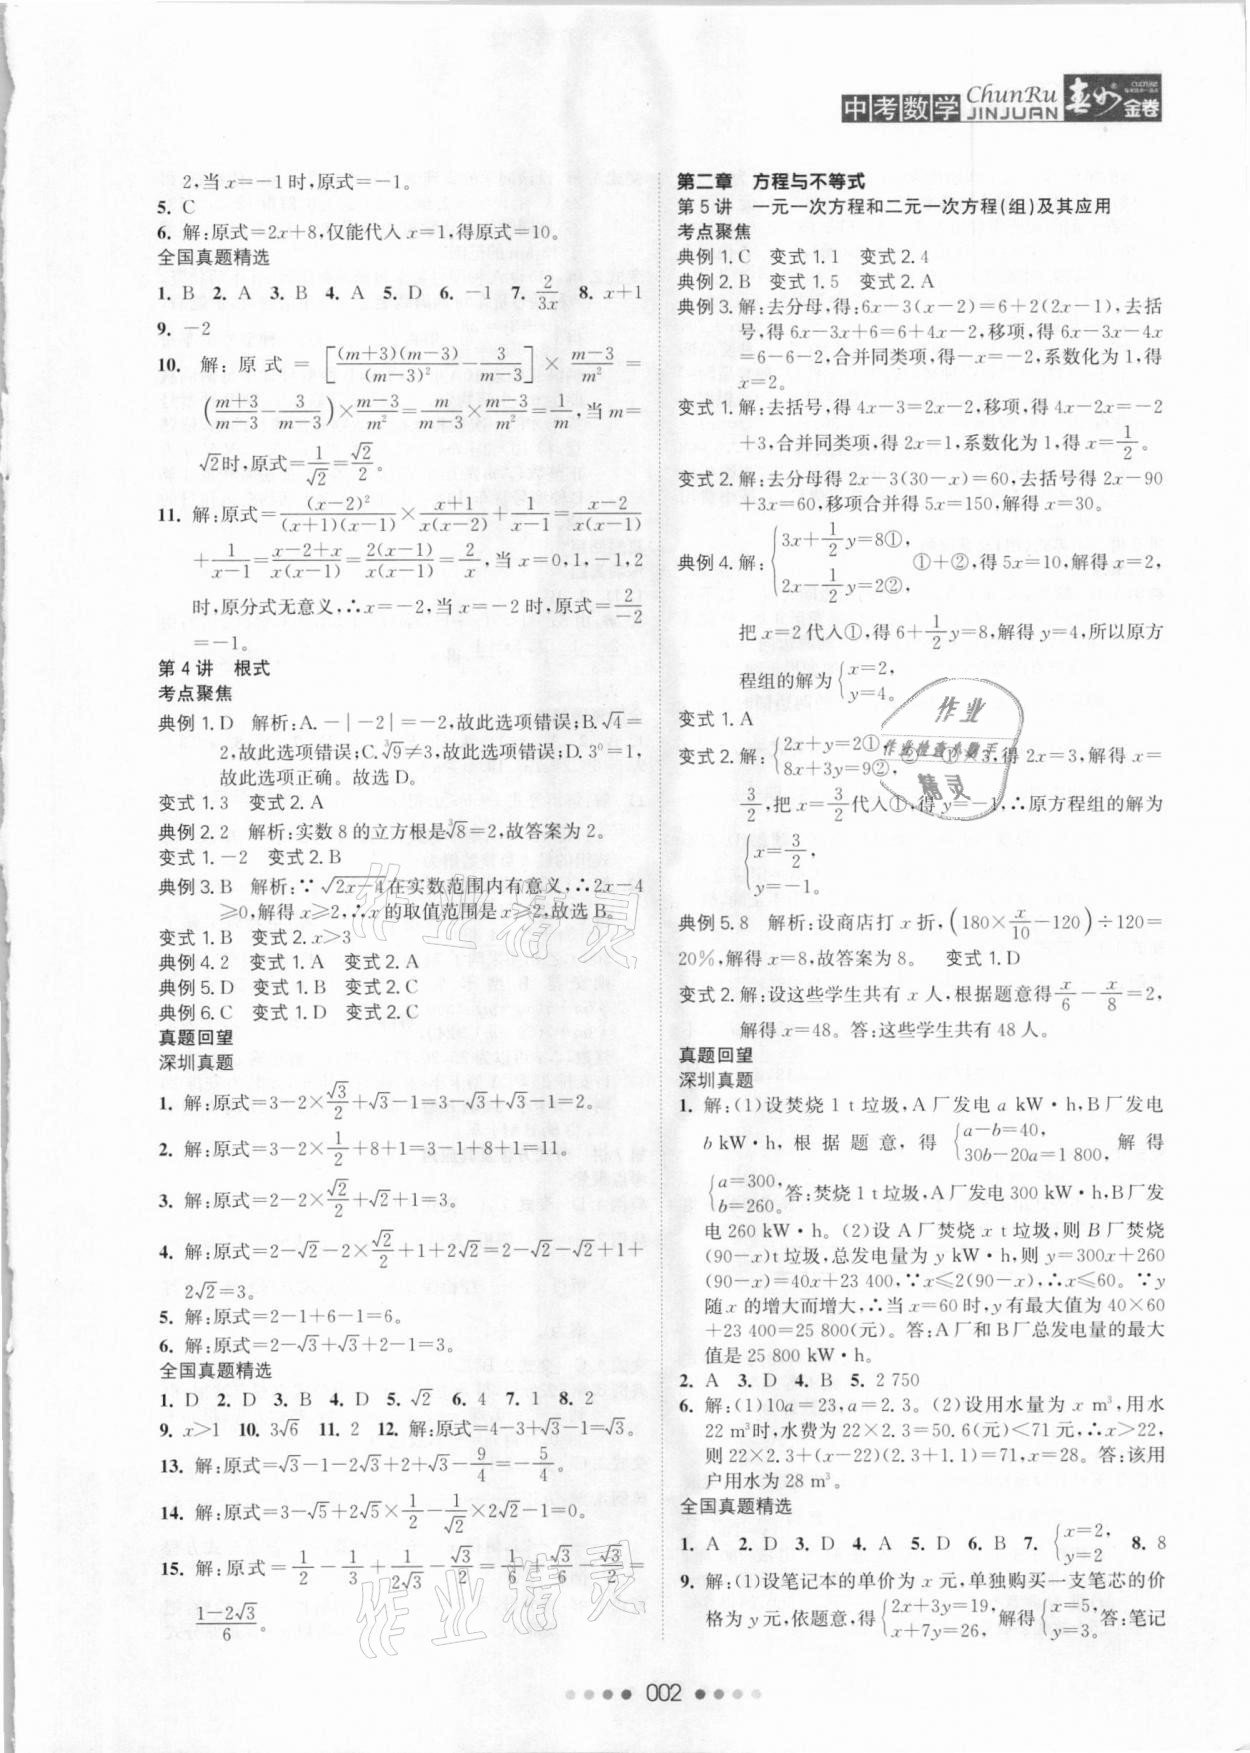 中考数学 ChunRu JINJUAN 春如金卷
2,当x=-1时,原式=-1。
5. C
6. 解:原式=2x+8,仅能代入x=1,得原式=10。
全国真题精选
1. B 2. A 3. B 4. A 5. D 6. -1 7. 2/(3x) 8. x+1
9. -2
10. 解:原式=[(m+3)(m-3)/(m-3)²-3/(m-3)]×(m-3)/m²=
((m+3)/(m-3)-3/(m-3))×(m-3)/m²=m/(m-3)×(m-3)/m²=1/m,当m=
√2时,原式=1/√2=√2/2。
11. 解:原式=(x-2)²/((x+1)(x-1))×(x+1)/(x(x-2))+1/(x-1)=(x-2)/(x(x-1))
+1/(x-1)=(x-2+x)/(x(x-1))=2(x-1)/(x(x-1))=2/x,当x=0,1,-1,2
时,原分式无意义,∴x=-2,当x=-2时,原式=2/(-2)
=-1。
第4讲 根式
考点聚焦
典例1. D 解析:A.-|-2|=-2,故此选项错误;B.√4=
2,故此选项错误;C.∛9≠3,故此选项错误;D.3⁰=1,
故此选项正确。故选D。
变式1. 3 变式2. A
典例2. 2 解析:实数8的立方根是∛8=2,故答案为2。
变式1. -2 变式2. B
典例3. B 解析:∵√(2x-4)在实数范围内有意义,∴2x-4
≥0,解得x≥2,∴x的取值范围是x≥2,故选B。
变式1. B 变式2. x>3
典例4. 2 变式1. A 变式2. A
典例5. D 变式1. B 变式2. C
典例6. C 变式1. D 变式2. C
真题回望
深圳真题
1. 解:原式=3-2×√3/2+√3-1=3-√3+√3-1=2。
2. 解:原式=3-2×1/2+8+1=3-1+8+1=11。
3. 解:原式=2-2×√2/2+√2+1=3。
4. 解:原式=2-√2-2×√2/2+1+2√2=2-√2-√2+1+
2√2=3。
5. 解:原式=2-1+6-1=6。
6. 解:原式=2-√3+√3+2-1=3。
全国真题精选
1. D 2. D 3. B 4. D 5. √2 6. 4 7. 1 8. 2
9. x>1 10. 3√6 11. 2 12. 解:原式=4-3+√3-1=√3。
13. 解:原式=√3-1-2√3+2+√3-9/4=-5/4。
14. 解:原式=3-√5+2√5×1/2-1/√2×2√2-1=0。
15. 解:原式=1/2-1/3+1/(2√3)-√3/2=1/6+√3/6-√3/2=
(1-2√3)/6。
第二章 方程与不等式
第5讲 一元一次方程和二元一次方程(组)及其应用
考点聚焦
典例1. C 变式1. 1 变式2. 4
典例2. B 变式1. 5 变式2. A
典例3. 解:去分母,得:6x-3(x-2)=6+2(2x-1),去括
号,得6x-3x+6=6+4x-2,移项,得6x-3x-4x
=6-6-2,合并同类项,得-x=-2,系数化为1,得
x=2。
变式1. 解:去括号,得4x-3=2x-2,移项,得4x-2x=-2
+3,合并同类项,得2x=1,系数化为1,得x=1/2。
变式2. 解:去分母得2x-3(30-x)=60,去括号得2x-90
+3x=60,移项合并得5x=150,解得x=30。
典例4. 解:{3x+1/2y=8①, 2x-1/2y=2②, ①+②,得5x=10,解得x=2,
把x=2代入①,得6+1/2y=8,解得y=4,所以原方
程组的解为{x=2, y=4。
变式1. A
变式2. 解:{2x+y=2①, 8x+3y=9②, ②-①×3,得2x=3,解得x=
3/2,把x=3/2代入①,得y=-1,∴原方程组的解为
{x=3/2, y=-1。
典例5. 8 解析:设商店打x折,(180×x/10-120)÷120=
20%,解得x=8,故答案为8。 变式1. D
变式2. 解:设这些学生共有x人,根据题意得x/6-x/8=2,
解得x=48。答:这些学生共有48人。
真题回望
深圳真题
1. 解:(1)设焚烧1t垃圾,A厂发电a kW·h,B厂发电
b kW·h,根据题意,得{a-b=40, 30b-20a=1 800, 解得
{a=300, b=260。答:焚烧1t垃圾,A厂发电300 kW·h,B厂发
电260 kW·h。(2)设A厂焚烧x t垃圾,则B厂焚烧
(90-x)t垃圾,总发电量为y kW·h,则y=300x+260
(90-x)=40x+23 400,∵x≤2(90-x),∴x≤60。∵y
随x的增大而增大,∴当x=60时,y有最大值为40×60
+23 400=25 800(元)。答:A厂和B厂总发电量的最大
值是25 800 kW·h。
2. A 3. D 4. B 5. 2 750
6. 解:(1)10a=23,a=2.3。(2)设用水量为x m³,用水
22 m³时,水费为22×2.3=50.6(元)<71元,∴x>22,
则22×2.3+(x-22)(2.3+1.1)=71,x=28。答:该用
户用水为28 m³。
全国真题精选
1. A 2. D 3. D 4. A 5. D 6. B 7. {x=2, y=2 8. 8
9. 解:(1)设笔记本的单价为x元,单独购买一支笔芯的价
格为y元,依题意,得{2x+3y=19, x+7y=26, 解得{x=5, y=3。答:笔记
作业
作业检查小帮手
精灵
作业精灵
作业精灵
002